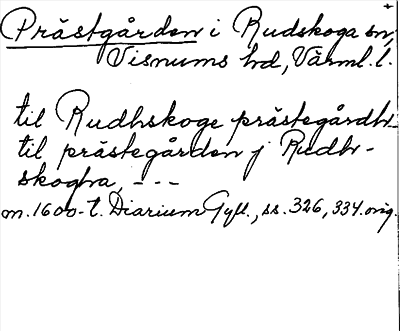 Prästgården i Rudskoga sn,
Visnums hd, Värml. l.
til Rudhskoge prästegårdh
til prästegården j Rudh-
skogha, - - -
m. 1600-t. Diarium Gyll., ss. 326, 334. orig.